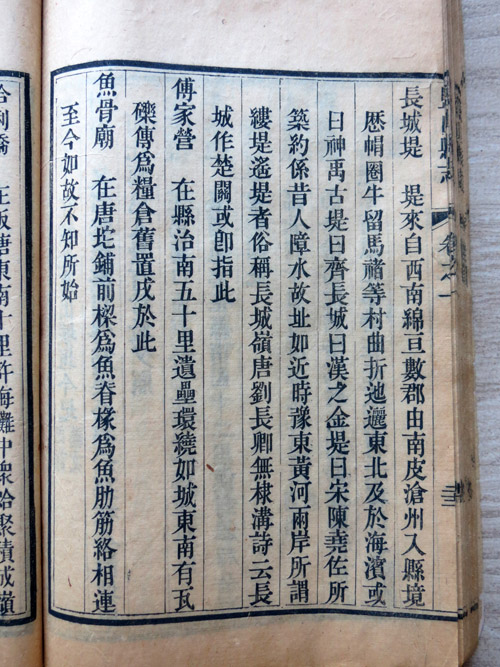 長城堤　堤來自西南綿亘數郡由南皮滄州入縣境
歷帽圈牛留馬禇等村曲折迆邐東北及於海濱或
曰神禹古堤曰齊長城曰漢之金堤曰宋陳堯佐所
築約係昔人障水故址如近時豫東黃河兩岸所謂
縷堤遙堤者俗稱長城嶺唐劉長卿無棣溝詩云長
城作楚關或卽指此
傅家營　在縣治南五十里遺壘環繞如城東南有瓦
礫傳爲糧倉舊置戍於此
魚骨廟　在唐坨鋪前樑爲魚脊椽爲魚肋筋絡相連
至今如故不知所始
在坂唐東南十里許海灘中衆蛤聚積成嶺